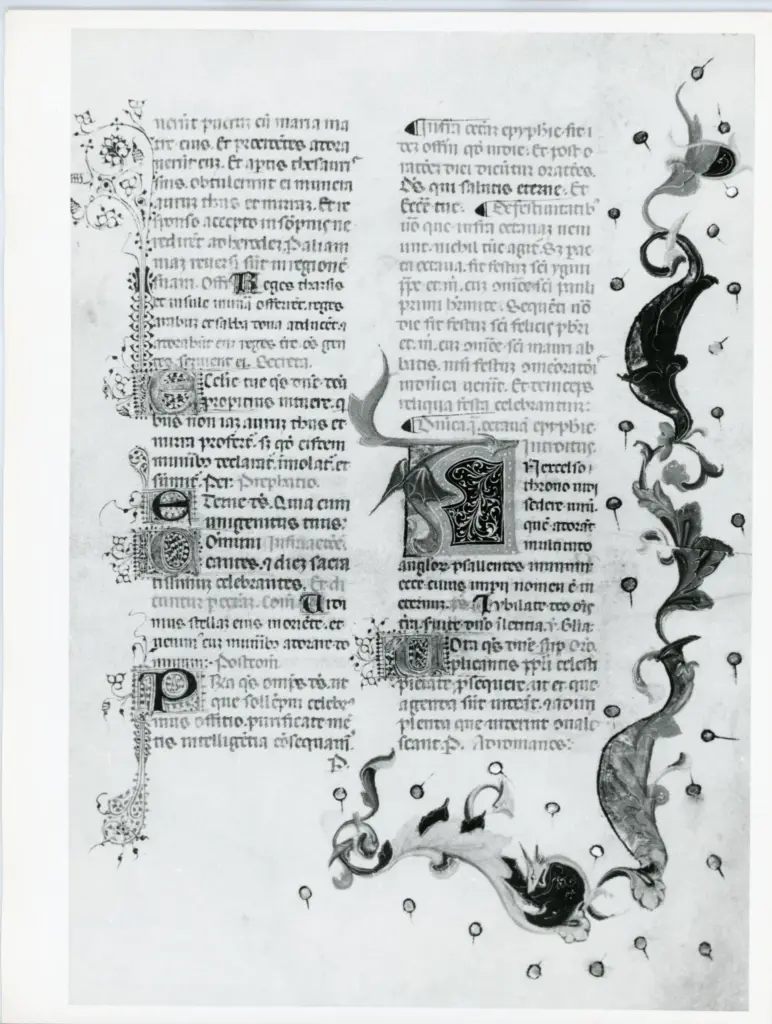 nerunt puerum cū maria ma
tre eius. Et procidētes adora
uerūt eum. Et aptis thesauris
suis. obtulerunt ei munera
aurum thus et mirram. Et re
sponso accepto in sōpnis ne
redirēt ad herodem. Per aliam
uiam reuersi sūt in regionē
suam. Off. Reges tharsis
et insule munā offerēt. reges
arabum et saba dona adducēt. ⁊
adorabūt eum reges tr̄e oēs gen
tes seruient ei. Secreta.
Ecclie tue q̄s dn̄e dona
propitius intuere. q̄
bus non iam aurum thus et
mirra profert̄. sȝ qd̄ eisdem
munibȝ declarat̄. imolat̄. et
sumit̄. Per. Prephatio.
Eterne ds̄. Quia cum
unigenitus tuus.
Comuni Infra actōē.
cantes. ⁊ diem sacra
tissimum celebrantes. Et di
cuntur Com̄. Uidi
mus stellam eius in oriēte. et
uenim̄ cum munibȝ adorare do
minum. Postcom̄.
PRa q̄s omp̄s ds̄. ut
que sollēpni celebra
mus offitio. purificate mē
tis intelligētia cōsequam̄.
P.
Infra octaū epyphie fit i
dem offm̄ qd̄ in die. Et post o
rationē diei dicūtur oratōes.
Ds̄ qui salutis eterne. Et
Ecc̄e tue. De festiuitatibȝ
uō que infra octauam ueni
unt. nichil tūc agit̄. Sȝ
in octaua. fit festum sc̄i ygini
pp̄e et m̄. cum om̄oē sc̄i pauli
primi h̄mite. Sequēti uō
die fit festum sc̄i felicis pb̄ri
et m̄. cum om̄oē sc̄i mauri ab
batis. nisi festum
uenit̄. Et deinceps
reliqua festa celebrantur.
Dn̄ica .i. octauā epyphie
Introitus.
IN excelso
throno uidi
sedere uirū.
quē adorat̄
multitudo
anglorum psallentes in unum
ecce cuius imp̄ii nomen ē in
eternum. ps̄. Iubilate deo oīs
tr̄a. suite dn̄o ī letitia. ℣. Gl̄ia.
UOta q̄s dn̄e sup Oro
plicantis pp̄li celesti
pietate psequere. ut et que
agenda sūt uideāt. ⁊ ad im
plenda que uiderint conuale
scant. P. Ad romanos.